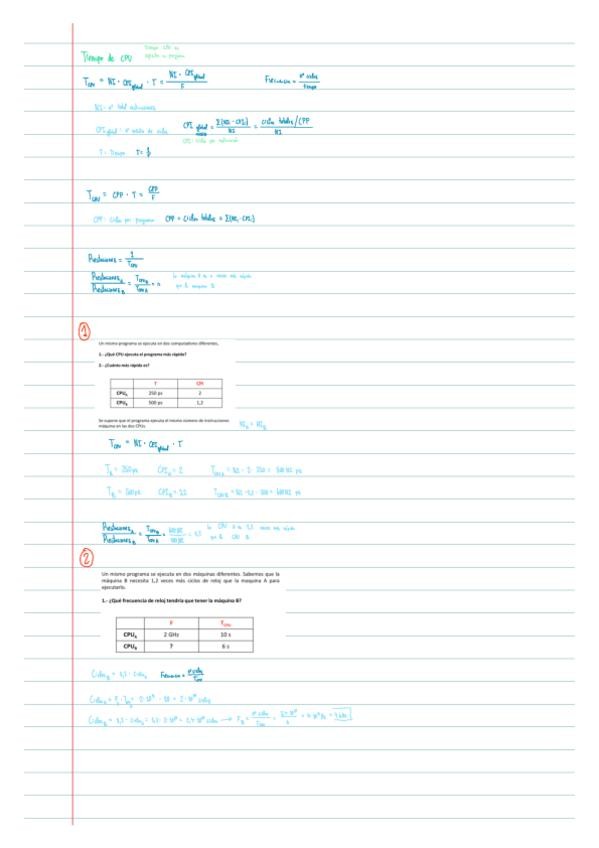 Tiempo de CPU
Tiempo CPU en
T_CPU = NI · CPI_global · T = NI · CPI_global / F
Frecuencia = nº ciclos / tiempo
NI: nº total instrucciones
CPI global: nº medio de ciclos
CPI global = Σ(NI_i · CPI_i) / NI = ciclos totales/CPP / NI
CPI: ciclos por instrucción
T = Tiempo T = 1/F
T_CPU = CPP · T = CPP / F
CPP: ciclos por programa CPP = ciclos totales = Σ(NI_i · CPI_i)
Prestaciones = 1 / T_CPU
Prestaciones_A / Prestaciones_B = T_CPU_B / T_CPU_A = n
la máquina A es n veces más rápida
que la máquina B
1
Un mismo programa se ejecuta en dos computadores diferentes.
1.- ¿Qué CPU ejecuta el programa más rápido?
2.- ¿Cuánto más rápida es?
T CPI
CPU_A 250 ps 2
CPU_B 500 ps 1,2
Se supone que el programa ejecuta el mismo número de instrucciones
máquina en las dos CPUs
NI_A = NI_B
T_CPU = NI · CPI_global · T
T_A = 250 ps CPI_A = 2 T_CPU A = NI · 2 · 250 = 500 NI ps
T_B = 500 ps CPI_B = 1,2 T_CPU B = NI · 1,2 · 500 = 600 NI ps
Prestaciones_A / Prestaciones_B = T_CPU_B / T_CPU_A = 600 NI / 500 NI = 1,2
la CPU A es 1,2 veces más rápida
que la CPU B
2
Un mismo programa se ejecuta en dos máquinas diferentes. Sabemos que la
máquina B necesita 1,2 veces más ciclos de reloj que la maquina A para
ejecutarlo.
1.- ¿Qué frecuencia de reloj tendría que tener la máquina B?
F T_CPU
CPU_A 2 GHz 10 s
CPU_B ? 6 s
Ciclos_B = 1,2 · Ciclos_A Frecuencia = nº ciclos / T_CPU
Ciclos_A = F_A · T_A = 2·10⁹ · 10 = 2·10¹⁰ ciclos
Ciclos_B = 1,2 · Ciclos_A = 1,2 · 2·10¹⁰ = 2,4·10¹⁰ ciclos → F_B = nº ciclos / T_CPU = 2,4·10¹⁰ / 6 = 4·10⁹ Hz = 4 GHz